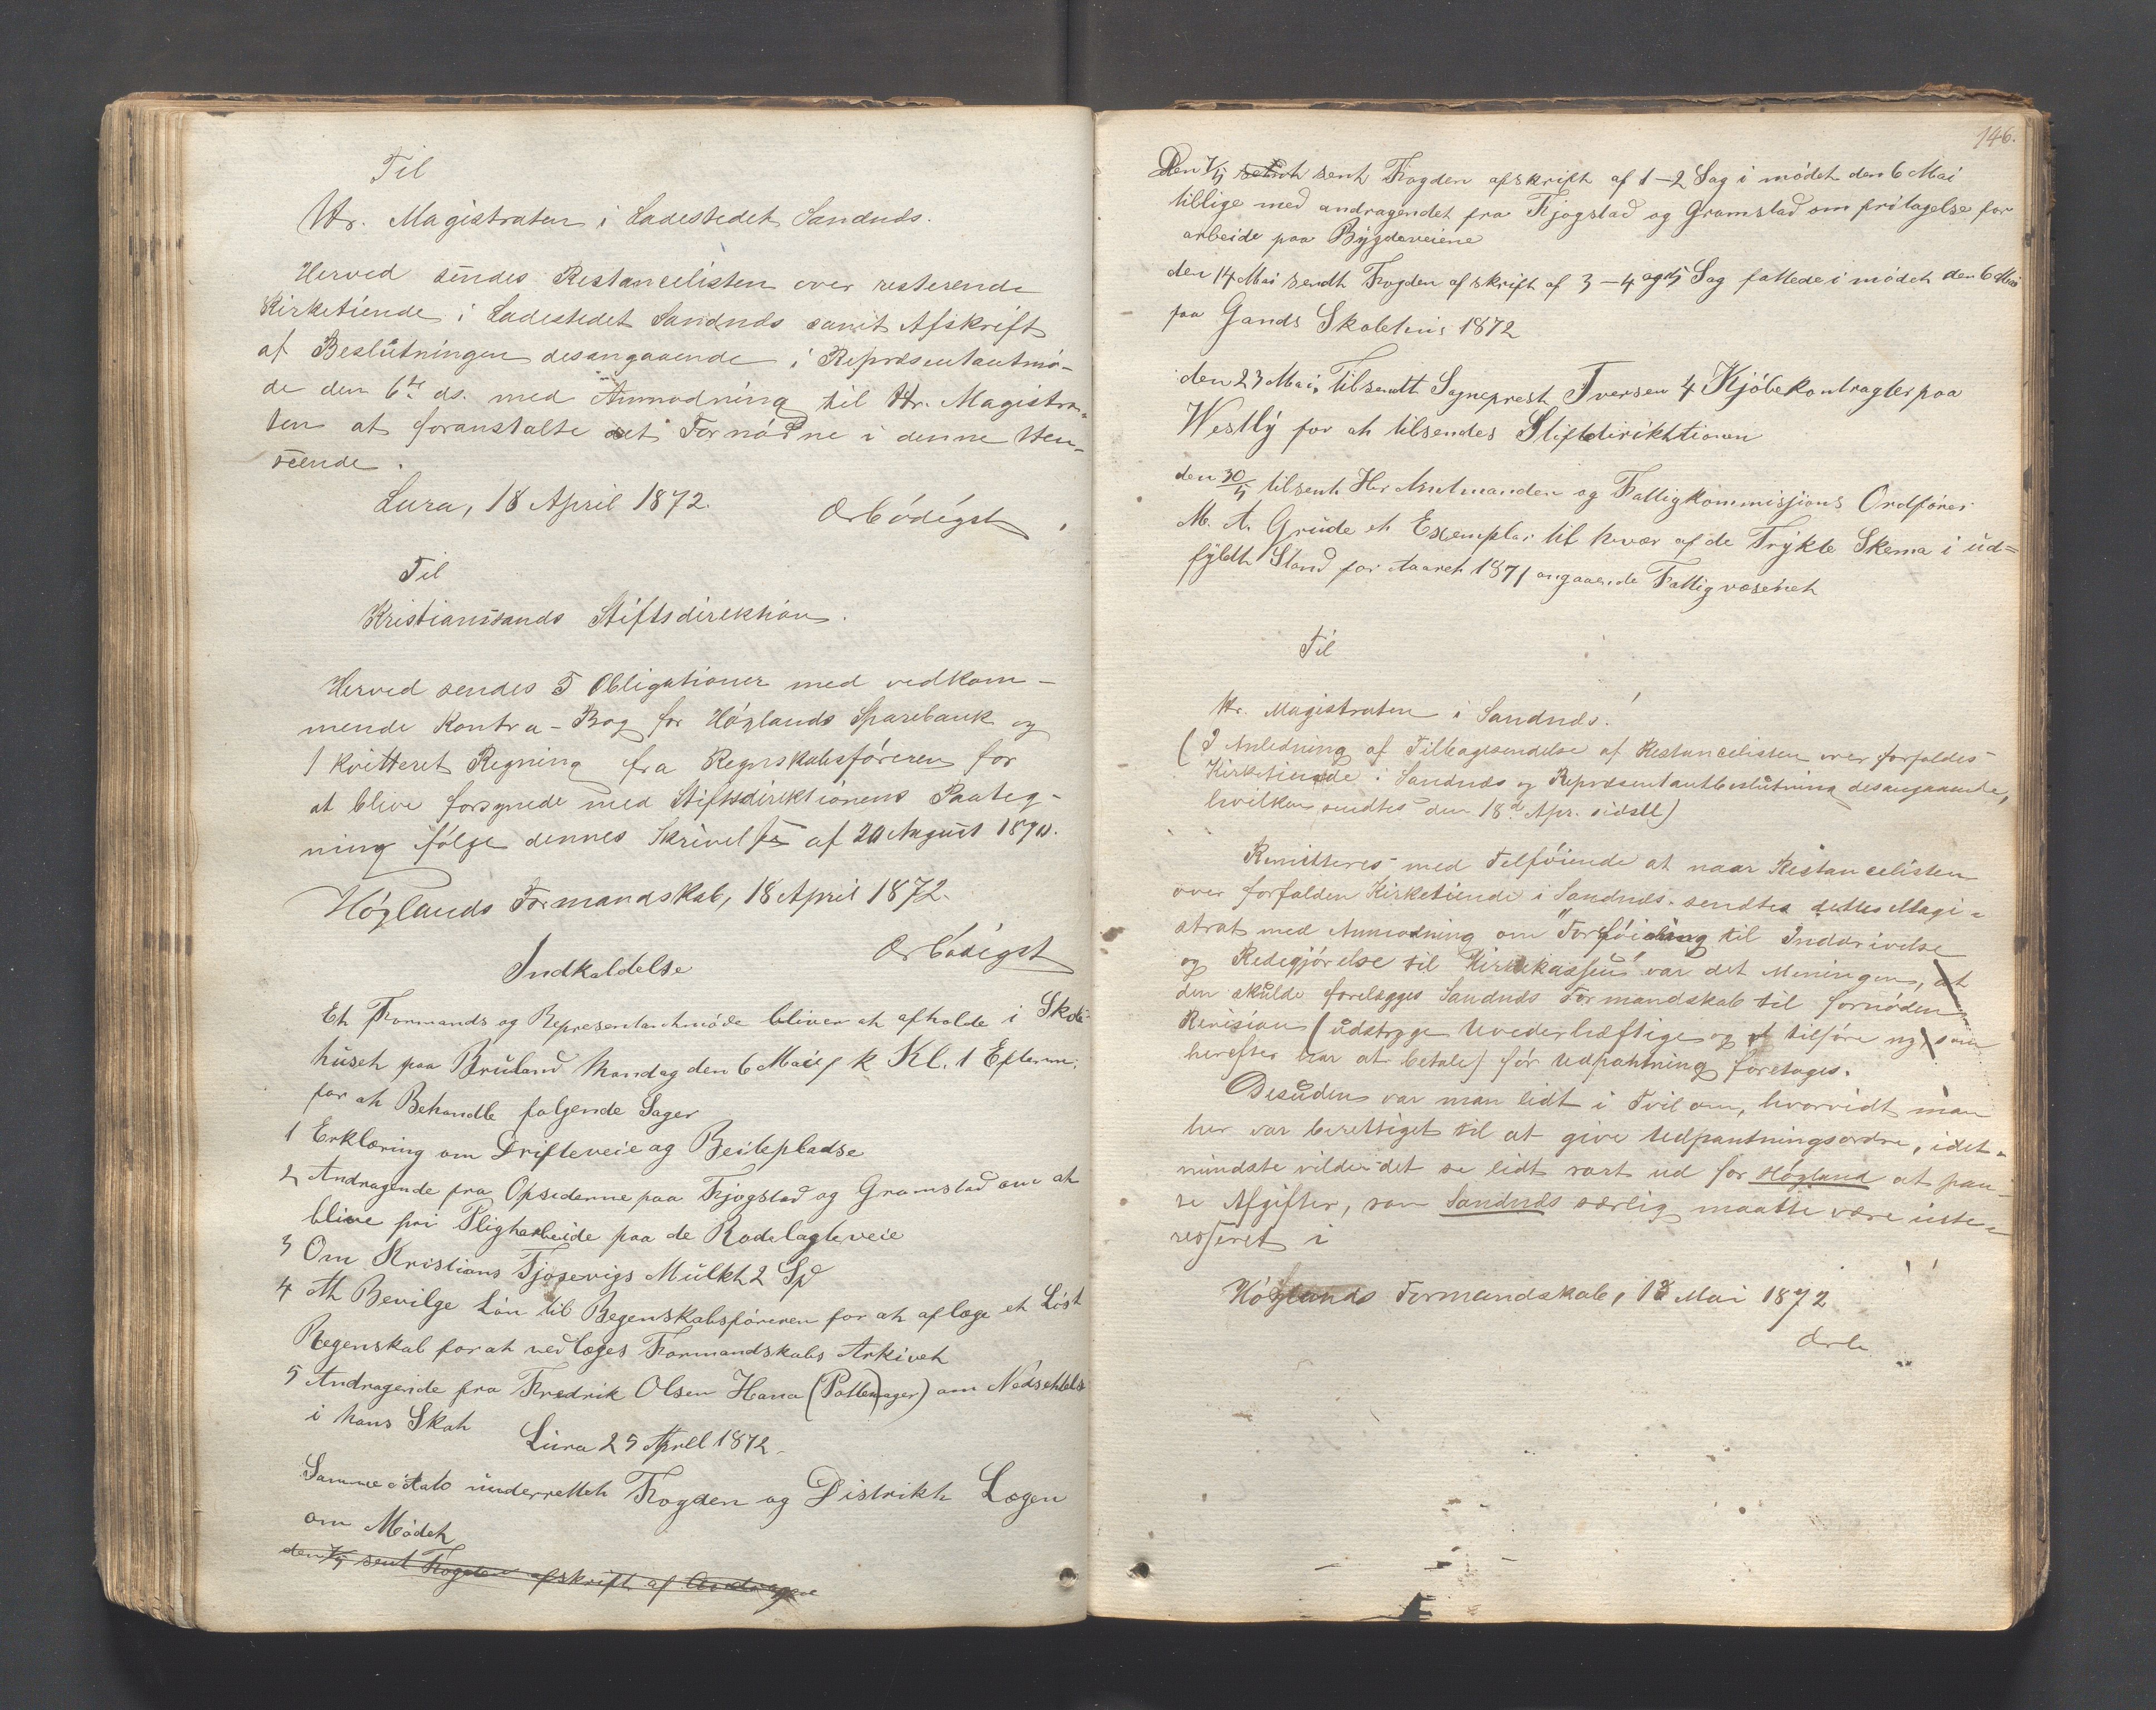 Til
Hr. Magistraten i Ladestedet Sandnds.
Herved sendes Restancelisten over resterende
Kirketiende i Ladestedet Sandnds samt Afskrift
af Beslutningen desangaaende i Repræsentantmö-
de den 6te ds. med Anmodning til Hr. Magistra-
ten at foranstalte det Fornödne i denne Hen-
seende.
Lura, 18 April 1872.
Ærbödigst
Til
Kristianssands Stiftsdirektion.
Herved sendes 5 Obligationer med vedkom-
mende Kontra-Bog for Höglands Sparebank og
1 kvitteret Regning fra Regnskabsföreren for
at blive forsynede med Stiftsdirektionens Paateg-
ning fölge dennes Skrivelse af 20 August 1870.
Höglands Formandskab, 18 April 1872.
Ærbödigst
Indkaldelse
Et Formands og Representantmöde bliver at afholde i Skole
huset paa Bruland Mandag den 6 Mai f k Kl. 1 Efterm.
for at Behandle folgende Sager
1 Erklæring om Drifteveie og Beitepladse
2 Andragende fra Opsederne paa Fjogstad og Gramstad om at
blive fri Pligtarbeide paa de Rodelagte veie
3 Om Kristians Tjosevigs Mulkt 2 Spd
4 At Bevilge Lön til Regenskabsföreren for at aflæge et Löst
Regenskab for at vedlæges Formandskabs Arkivet
5 Andragende fra Fredrik Olsen Hana (Pottemager) om Nedsettelse
i hans Skat
Lura 25 April 1872
Samme dato underrettet Fogden og Distrikt Lægen
om Mödet
den 7/5 sent Fogden afskrift af Andragene
146.
Den 7/5 sent Fogden afskrift af 1-2 Sag i mödet den 6 Mai
tillige med andragendet fra Fjogstad og Gramstad om fritagelse for
arbeide paa Bygdeveiene
den 14 Mai sendt Fogden afskrift af 3-4 og 5 Sag fattede i mödet den 6 Mai
paa Gands Skolehus 1872
den 23 Mai Tilsendt Sogneprest Iversen 4 Kjöbekontragter paa
Westly for at tilsendes Stiftdiriktionen
den 30/5 tilsent Her Amtmanden og Fattigkommissjons Ordförer
M. A. Grude et Exemplar til hver af de Trykte Skema i ud=
fyldt Stand for Aaret 1871 angaaende Fattigvæsenet
Til
Hr. Magistraten i Sandnds!
(I Anledning af Tilbagesendelse af Restancelisten over forfaldes
Kirketiende i Sandnds og Repræsentantbeslutning desangaaende,
hvilken sendtes den 18de Apr. sidstl)
Remitteres med Tilföiende at naar Restancelisten
over forfalden Kirketiende i Sandnds sendtes dettes Magi-
strat med Anmodning om "Forföining til Inddrivelse
og Redegjörelse til Kirkekassen" var det Meningen, at
den skulde forelægges Sandnds Formandskab til fornöden
Revision (udstryge Uvederhæftige og tilföre ny, som
herefter har at betale) för Udpantning foretages.
Desuden var man lidt i Tvil om, hvorvidt man
her var berettiget til at give Udpantningsordre, idet-
mindste vilde det se lidt rart ud for Högland at pan-
te Afgifter, som Sandnds særlig maatte være inte-
resseret i
Höglands Formandskab, 18 Mai 1872
Ærb.